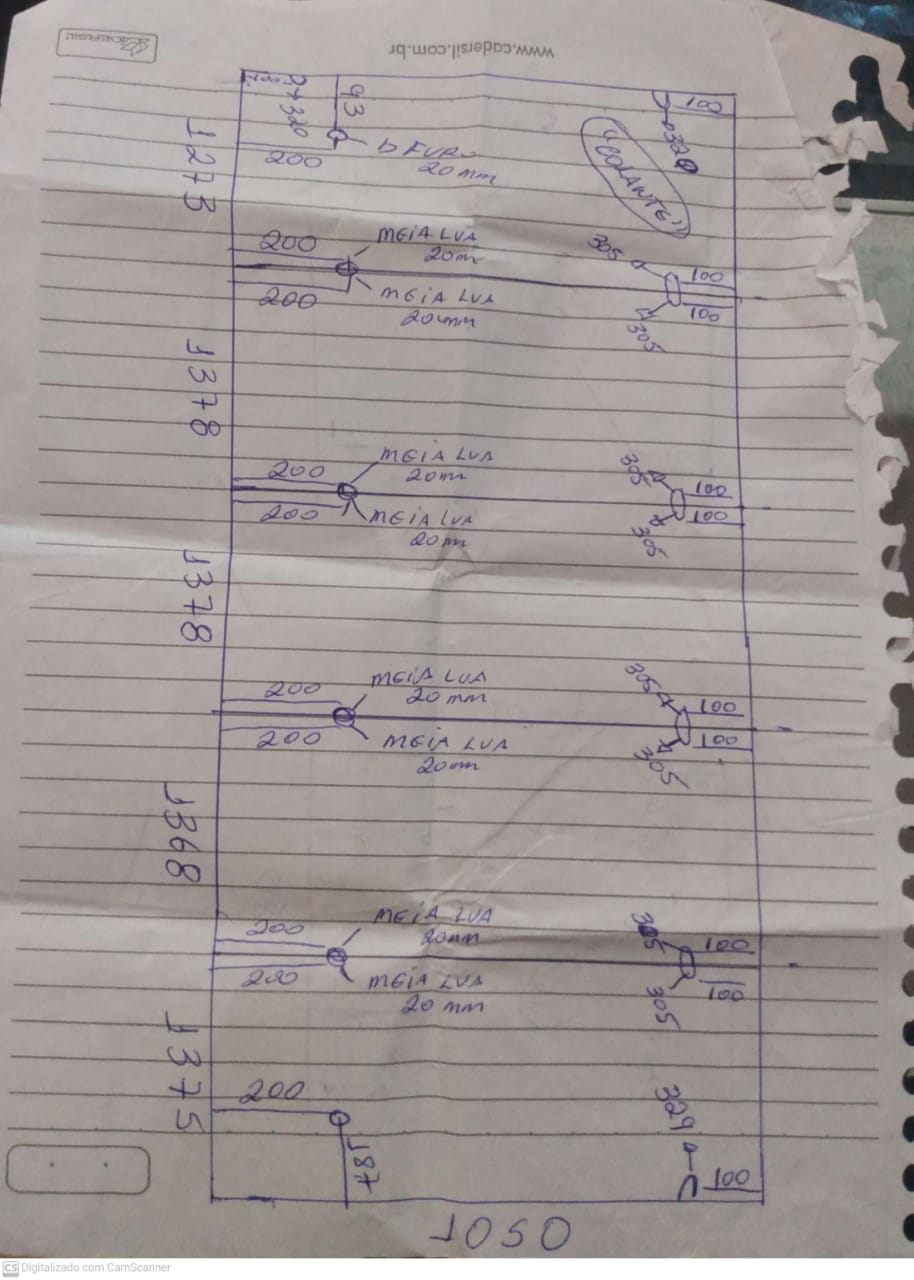 www.cadersil.com.br
CADERSIL
100
93
320
"VOLANTE"
FURO
20mm
200
1273
200
MEIA LUA
20m
305
100
200
MEIA LUA
20mm
305
100
1378
200
MEIA LUA
20mm
305
100
200
MEIA LUA
20mm
305
100
1378
200
MEIA LUA
20mm
305
100
200
MEIA LUA
20mm
305
100
1368
200
MEIA LUA
20mm
305
100
200
MEIA LUA
20mm
305
100
1375
200
187
329
100
1050
CS Digitalizado com CamScanner